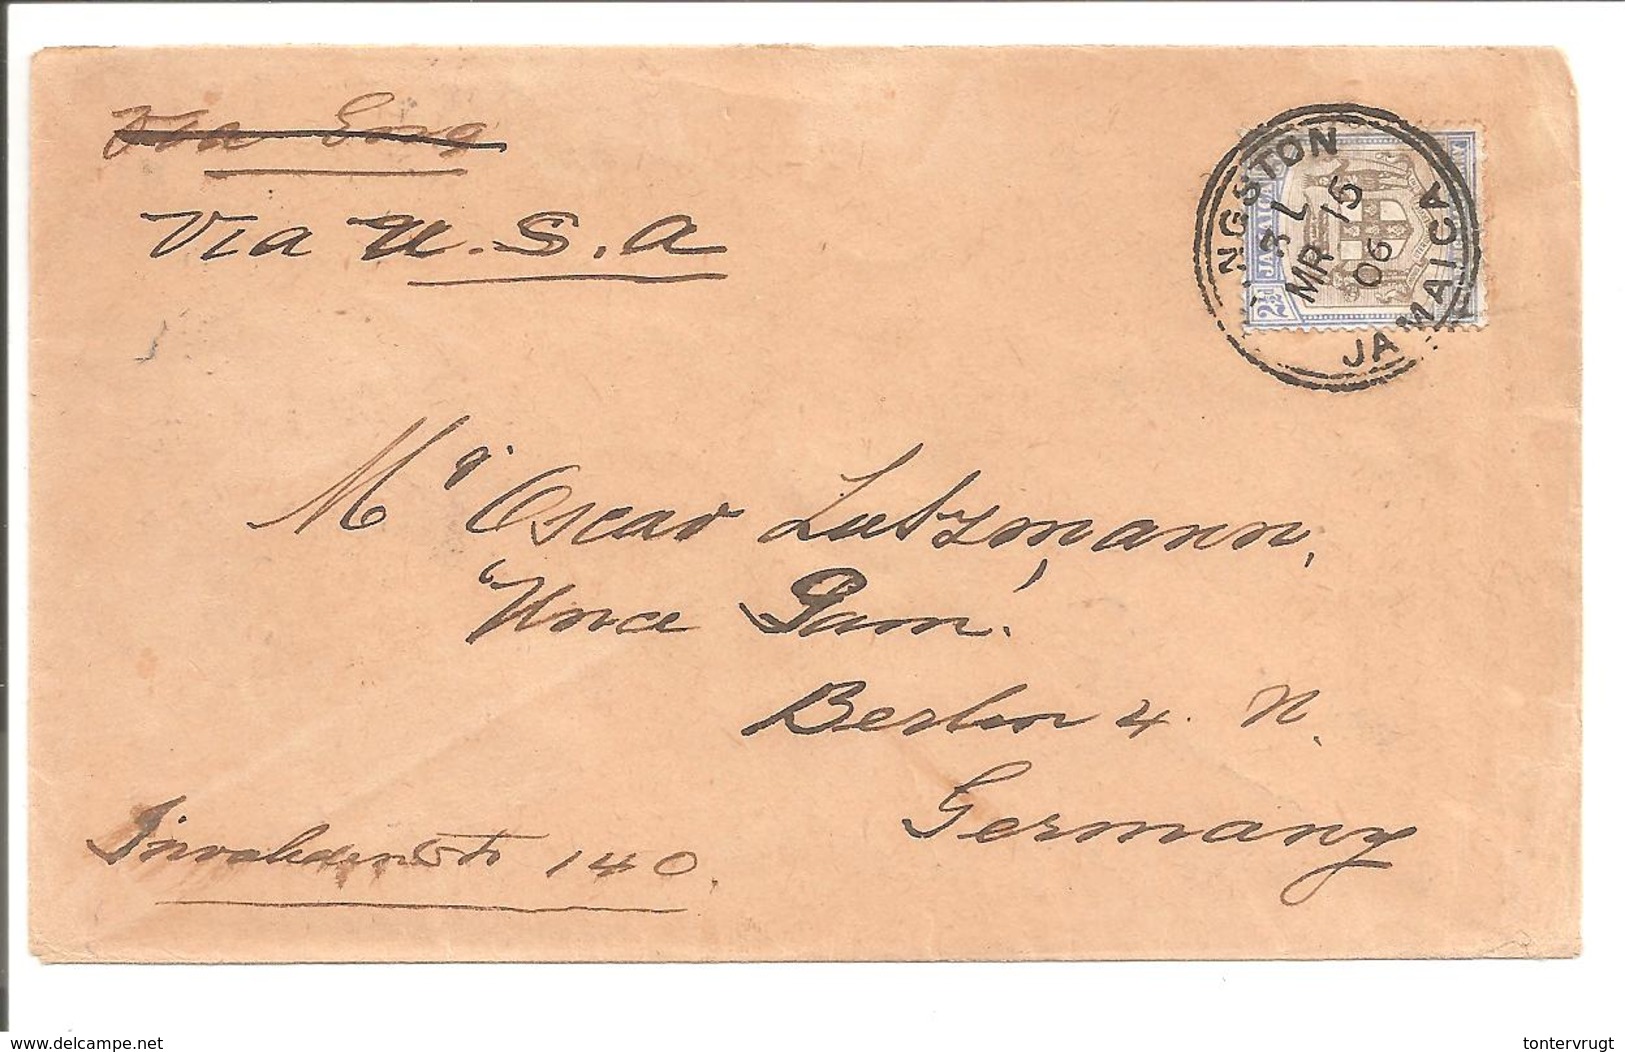 Via Eng
Via U.S.A
KINGSTON
3 L
MR 15
06
JAMAICA
JAMAICA
2½d
Mr Oscar Lutzmann,
Berlin 4. N.
Germany
Invalidenstr 140.
www.delcampe.net
tontervrugt